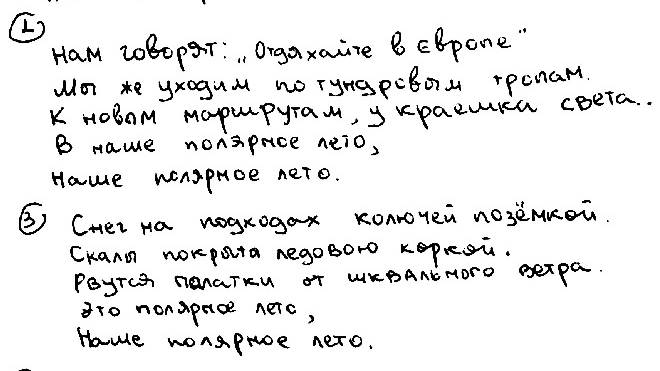 1
Нам говорят: „Отдахайте в Европе"
Мы же уходим по тундровым тропам.
К новым маршрутам, у краешка света..
В наше полярное лето,
Наше полярное лето.
3 Снег на подходах колючей позёмкой.
Скалы покрыта ледовою коркой.
Рвутся палатки от шквального ветра.
Это полярное лето,
Наше полярное лето.